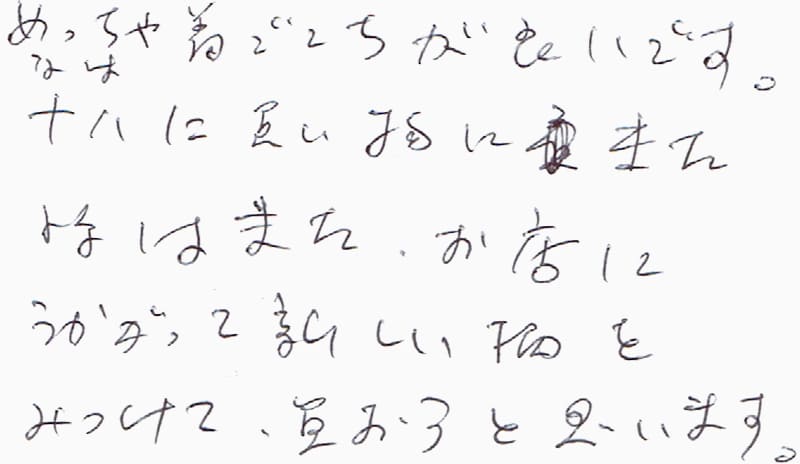 めっちゃ着ごこちが良いです。
なは
ナハに買い物に来た
時はまた、お店に
うかがって新しい物を
みつけて、買おうと思います。